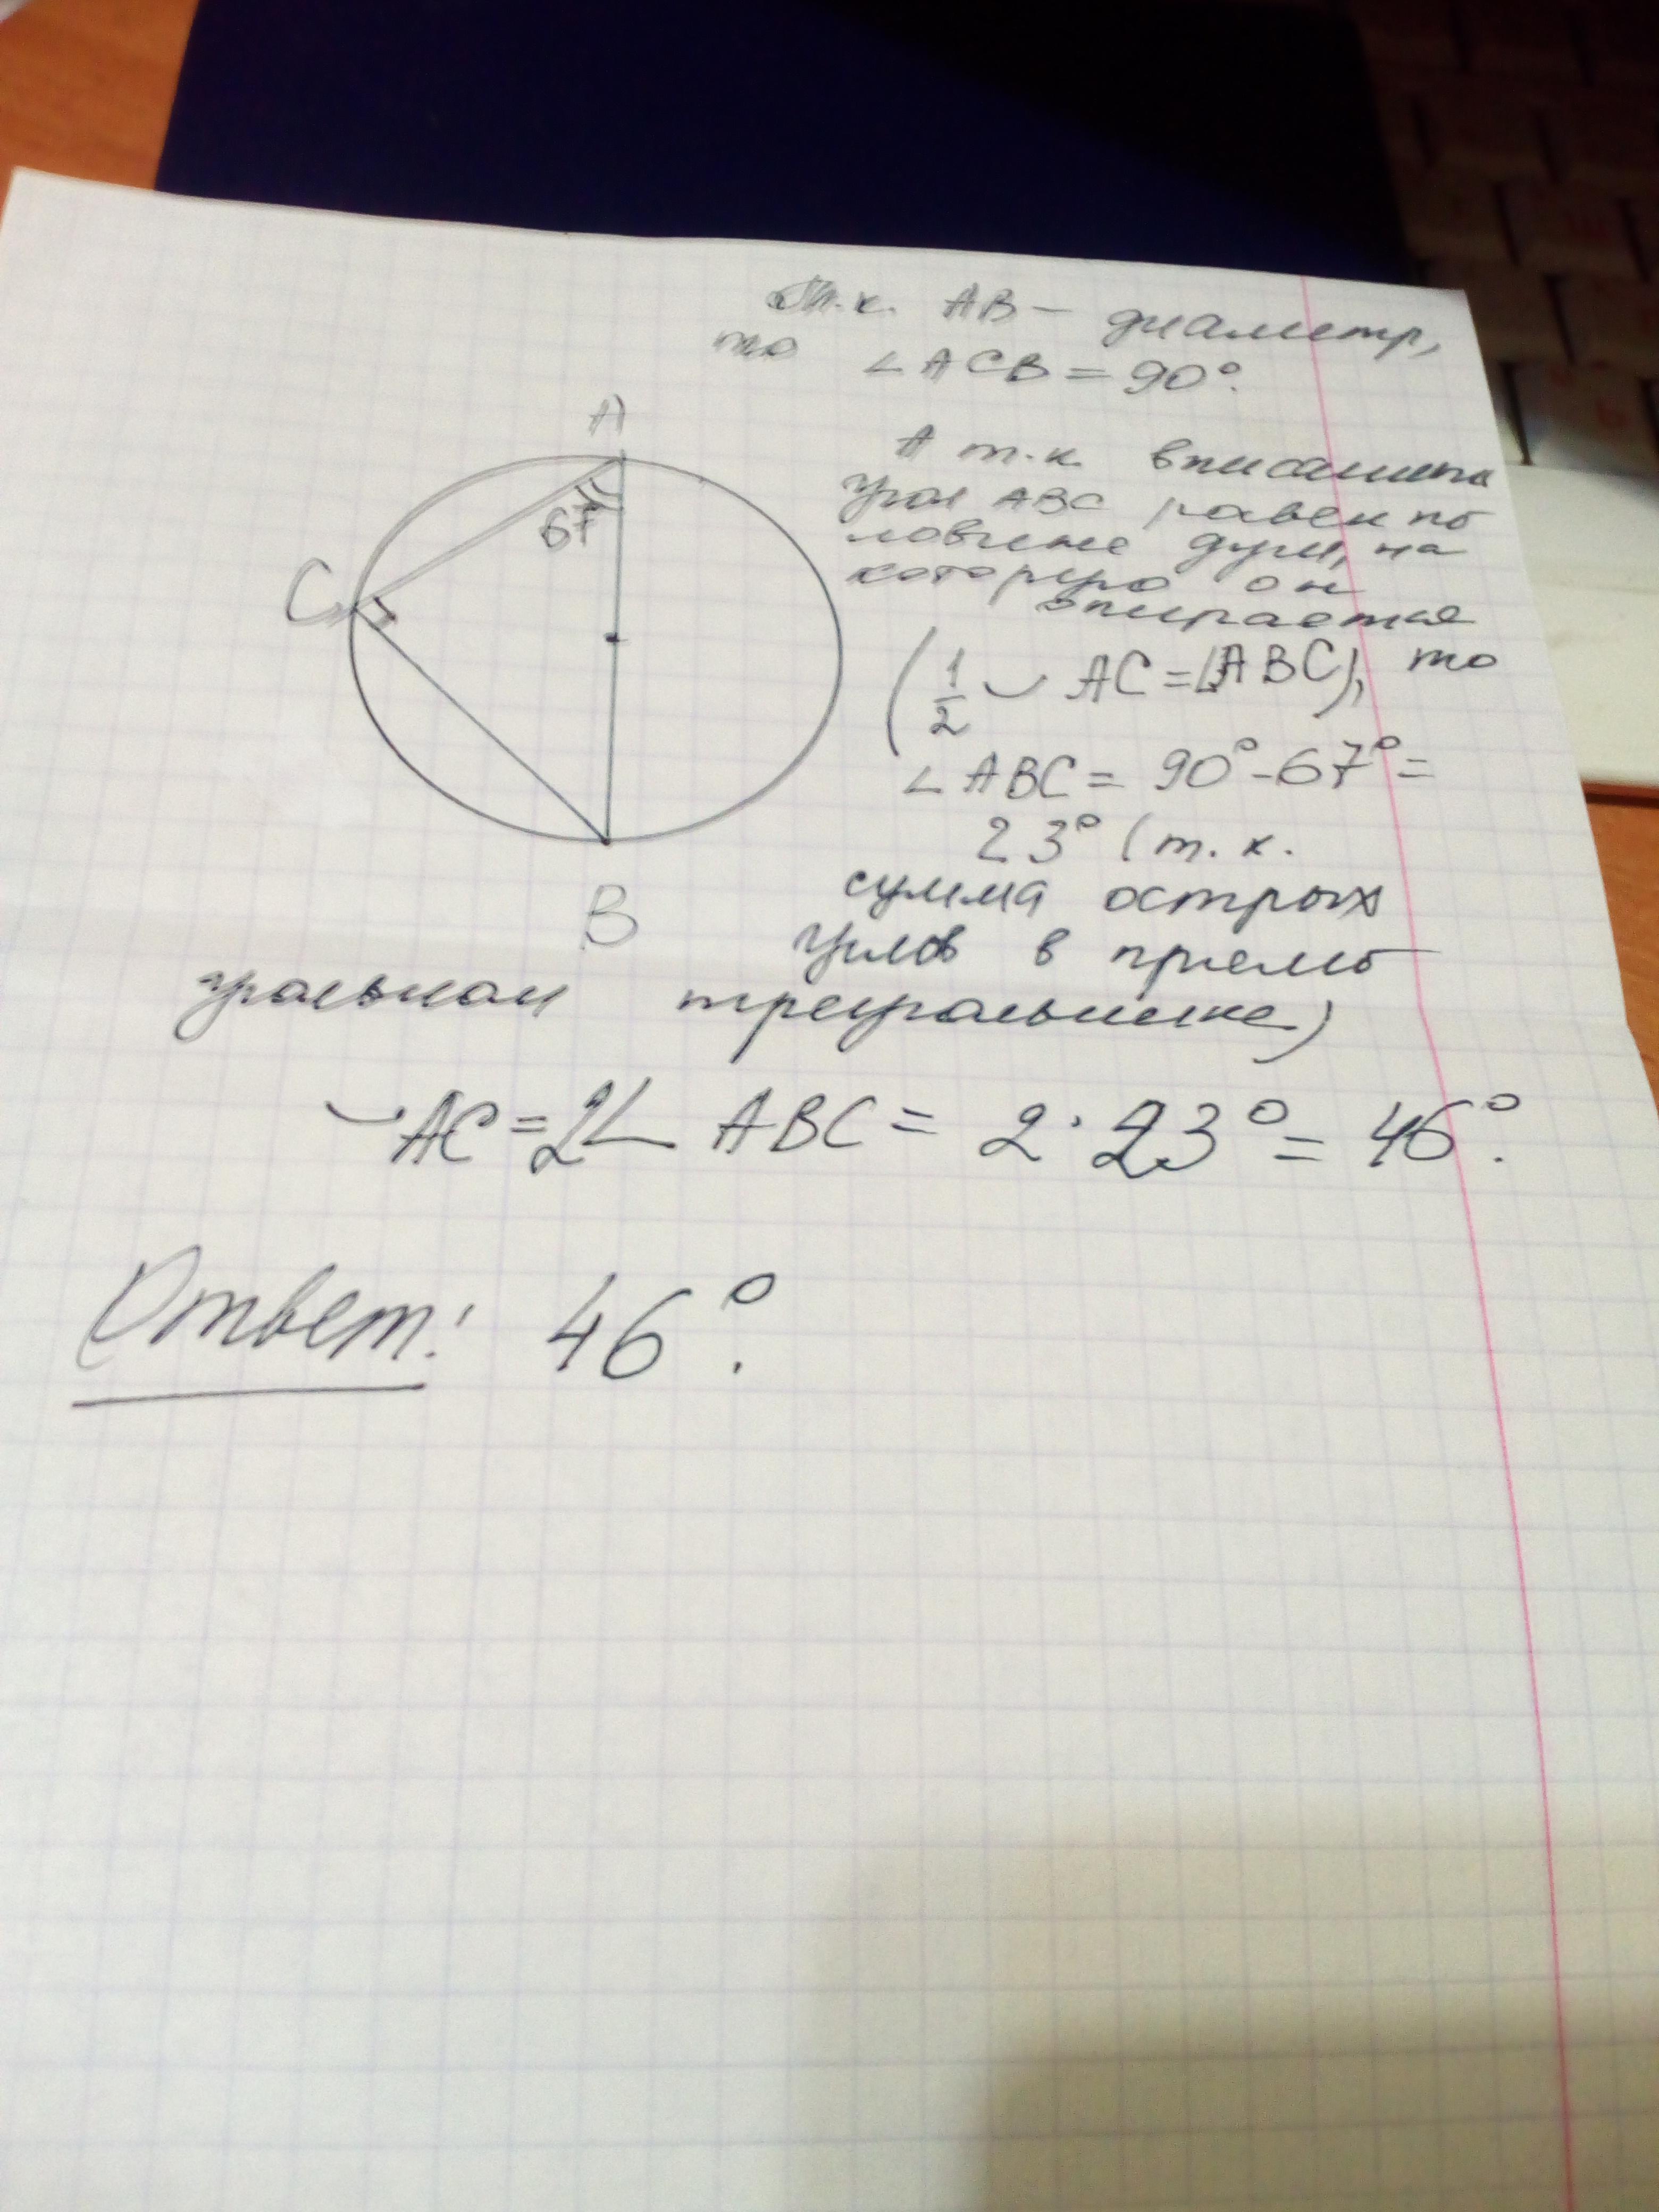 Т.к. AB — диаметр,
то ∠ACB = 90°.
А т.к. вписанный
угол ABC равен по
ловине дуги, на
которую он
опирается
(1/2 ◡ AC = ∠ABC), то
∠ABC = 90° - 67° =
23° (т.к.
сумма острых
углов в прямо
угольном треугольнике)
◡AC = 2∠ABC = 2·23° = 46°.
Ответ: 46°.
A
67
C
B